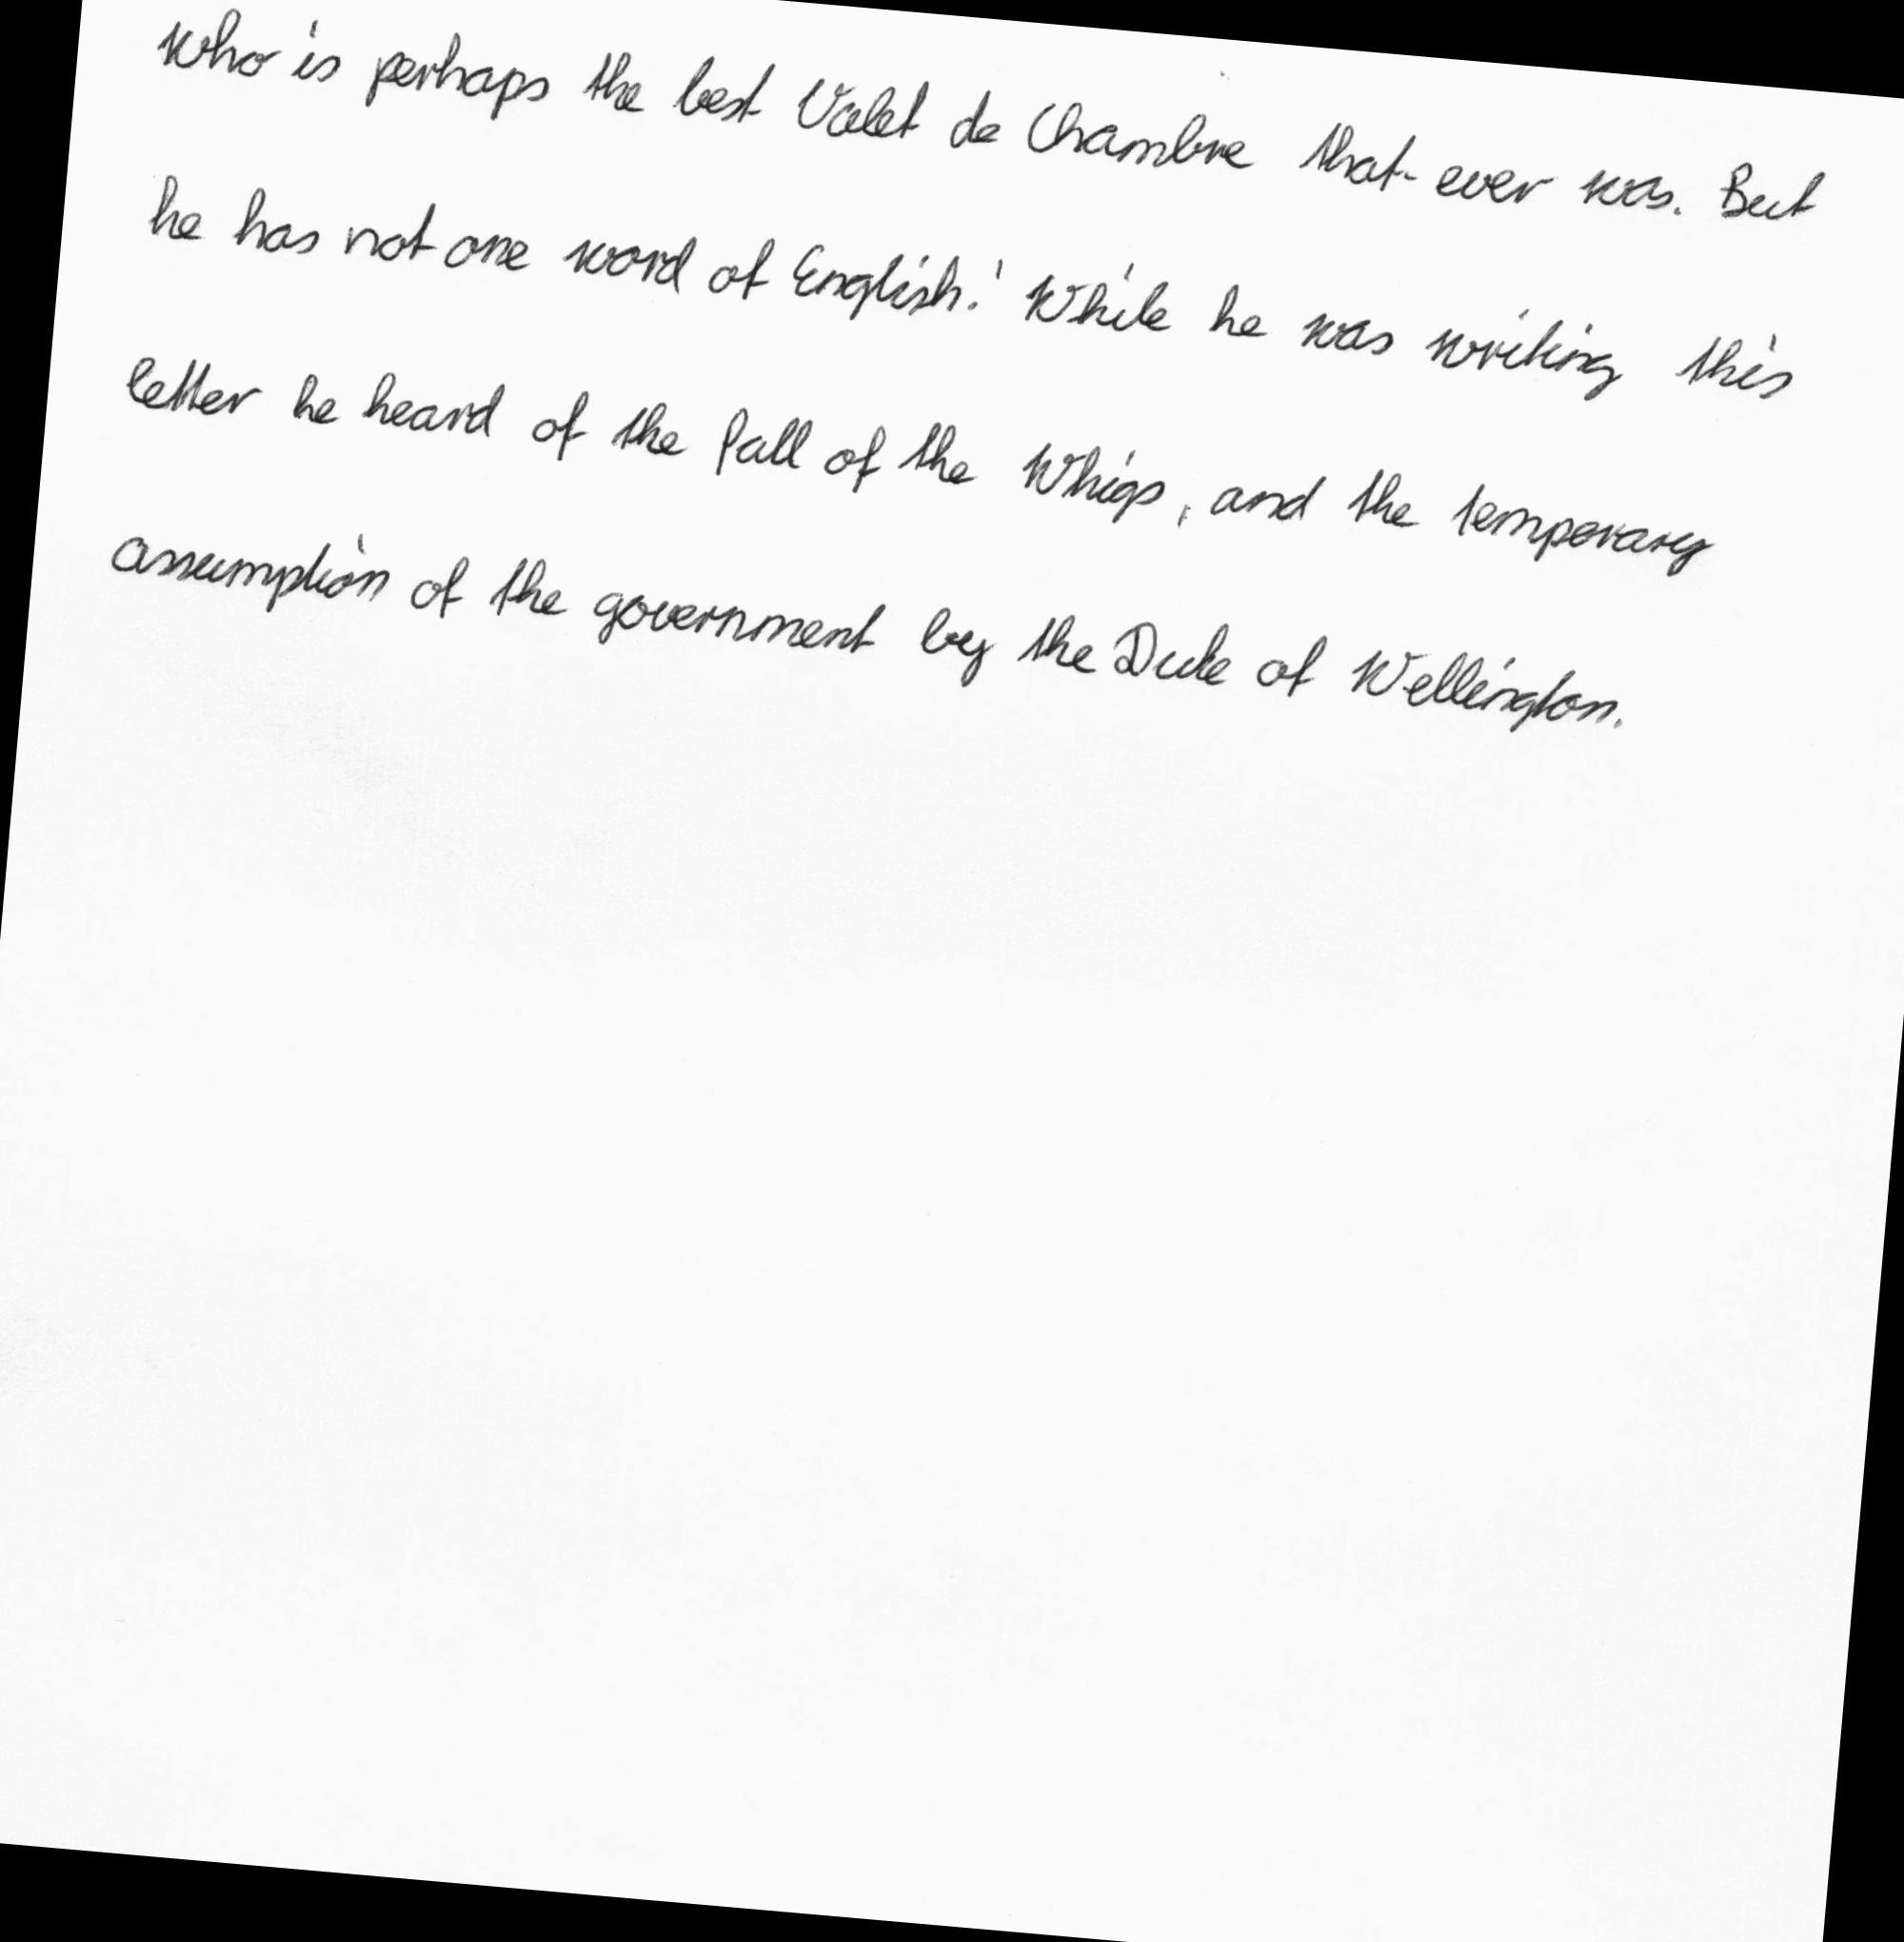 who is perhaps the best Valet de Chambre that ever was. But
he has not one word of English.' While he was writing this
letter he heard of the fall of the Whigs, and the temporary
assumption of the government by the Duke of Wellington.